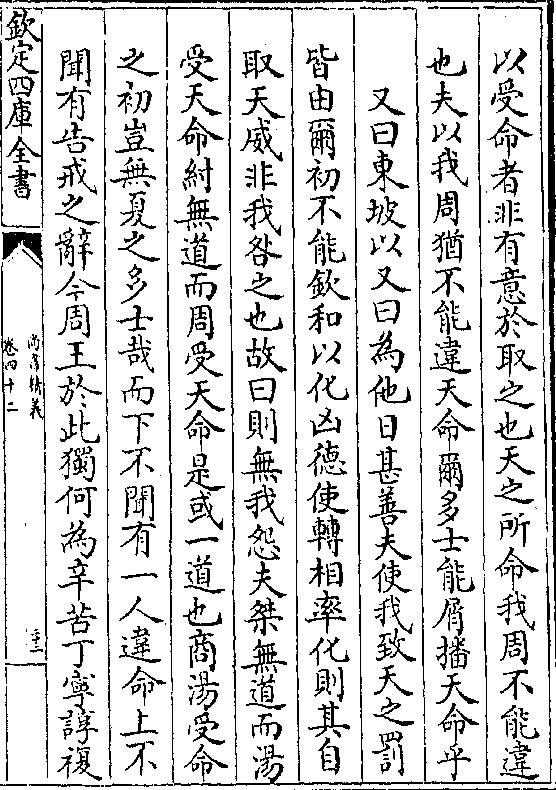 以受命者非有意於取之也天之所命我周不能違
也夫以我周猶不能違天命爾多士能屑播天命乎
又曰東坡以又曰為他日甚善夫使我致天之罰
皆由爾初不能欽和以化凶德使轉相率化則其自
取天威非我咎之也故曰則無我怨夫桀無道而湯
受天命紂無道而周受天命是或一道也商湯受命
之初豈無夏之多士哉而下不聞有一人違命上不
聞有告戒之辭今周王於此獨何為辛苦丁寧諄複
欽定四庫全書
尚書精義
卷四十二